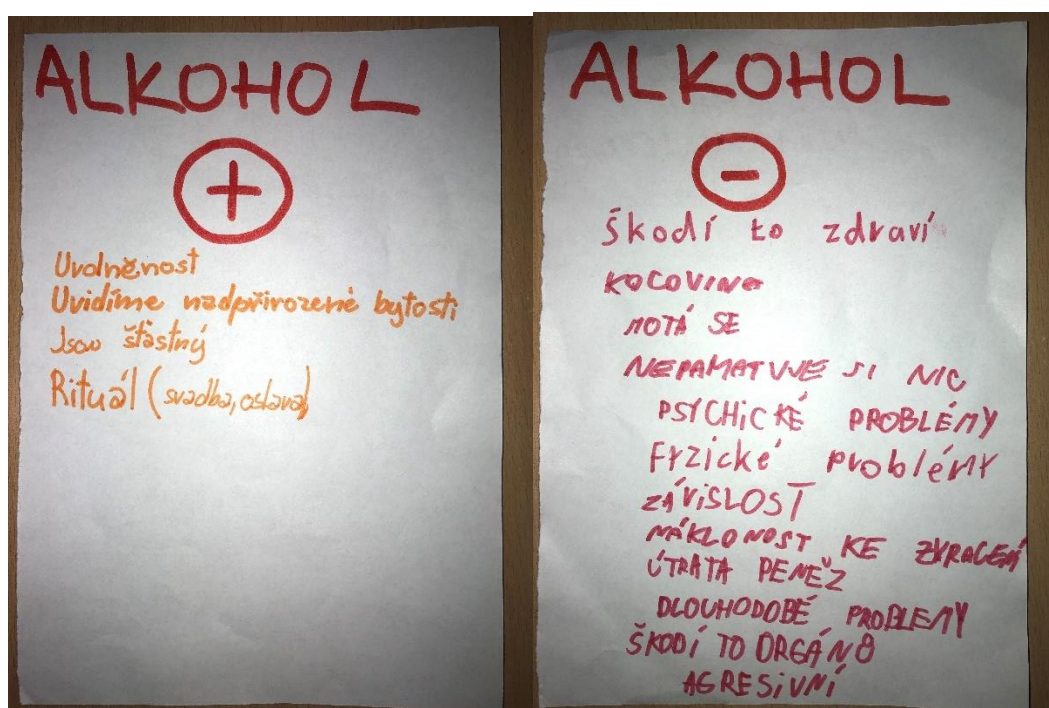 ALKOHOL
+
Uvolněnost
Uvidíme nadpřirozené bytosti
Jsou šťastný
Rituál (svadba, oslava)
ALKOHOL
-
Škodí to zdraví
KOCOVINA
MOTÁ SE
NEPAMATUJE SI NIC
PSYCHICKÉ PROBLÉMY
Fyzické problémy
ZÁVISLOST
NÁKLONOST KE ZVRACENÍ
ÚTRATA PENĚZ
DLOUHODOBÉ PROBLEMY
ŠKODÍ TO ORGÁNŮ
AGRESIVNÍ